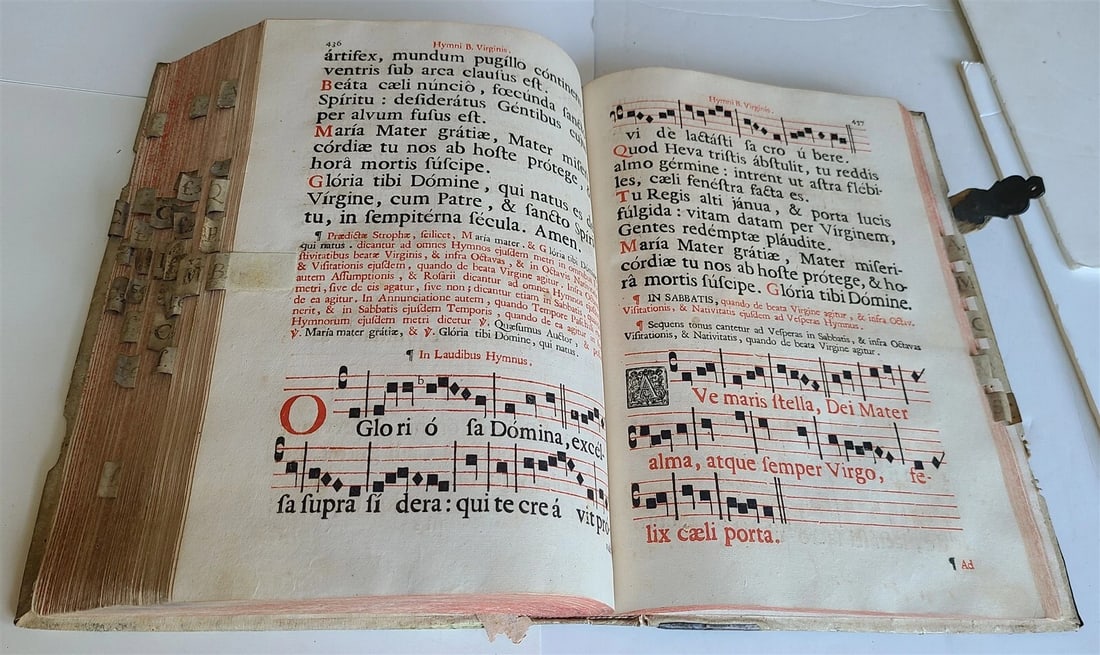 436
Hymni B. Virginis.
ártifex, mundum pugíllo cóntinens
ventris ſub arca clauſus eſt.
Beáta cæli núnciò, fœcúnda ſancto
Spíritu : deſiderátus Géntibus cujus
per alvum fuſus eſt.
María Mater grátiæ, Mater miſeri-
córdiæ tu nos ab hoſte prótege, &
horâ mortis ſúſcipe.
Glória tibi Dómine, qui natus es de
Vírgine, cum Patre, & ſancto Spíri-
tu, in ſempitérna ſécula. Amen.
¶ Prædictæ Strophæ, ſcilicet, Maria mater. & Gloria tibi Domine,
qui natus. dicantur ad omnes Hymnos ejuſdem metri in omnibus
ſtivitatibus beatæ Virginis, & infra Octavas, & in Octavis Nativit.
& Viſitationis ejuſdem, quando de beata Virgine agitur. Infra Octav.
autem Aſſumptionis, & Roſarii dicantur ad omnes Hymnos ejuſdem
metri, ſive de eis agatur, ſive non ; dicantur etiam in Sabbatis,
de ea agitur. In Annunciatione autem, quando Tempore Paſch.
nerit, & in Sabbatis ejuſdem Temporis, quando de ea agitur,
Hymnorum ejuſdem metri dicetur ℣. Quæſumus Auctor. &
℣. Maria mater grátiæ, & ℣. Glória tibi Domine, qui natus.
¶ In Laudibus Hymnus.
O Glo ri ó ſa Dómina, excél-
ſa ſupra ſí dera : qui te cre á vit pró
Hymni B. Virginis.
437
vi de lactáſti ſa cro ú bere.
Quod Heva triſtis ábſtulit, tu reddis
almo gérmine : intrent ut aſtra flébi-
les, cæli fenéſtra facta es.
Tu Regis alti jánua, & porta lucis
fúlgida : vitam datam per Vírginem,
Gentes redémptæ pláudite.
María Mater grátiæ, Mater miſeri-
córdiæ tu nos ab hoſte prótege, & ho-
râ mortis ſúſcipe. Glória tibi Dómine.
¶ IN SABBATIS, quando de beata Virgine agitur, & infra Octav.
Viſitationis, & Nativitatis ejuſdem ad Veſperas Hymnus.
¶ Sequens tonus cantetur ad Veſperas in Sabbatis, & infra Octavas
Viſitationis, & Nativitatis, quando de beata Virgine agitur.
AVe maris ſtella, Dei Mater
alma, atque ſemper Virgo, fe-
lix cæli porta.
¶ Ad